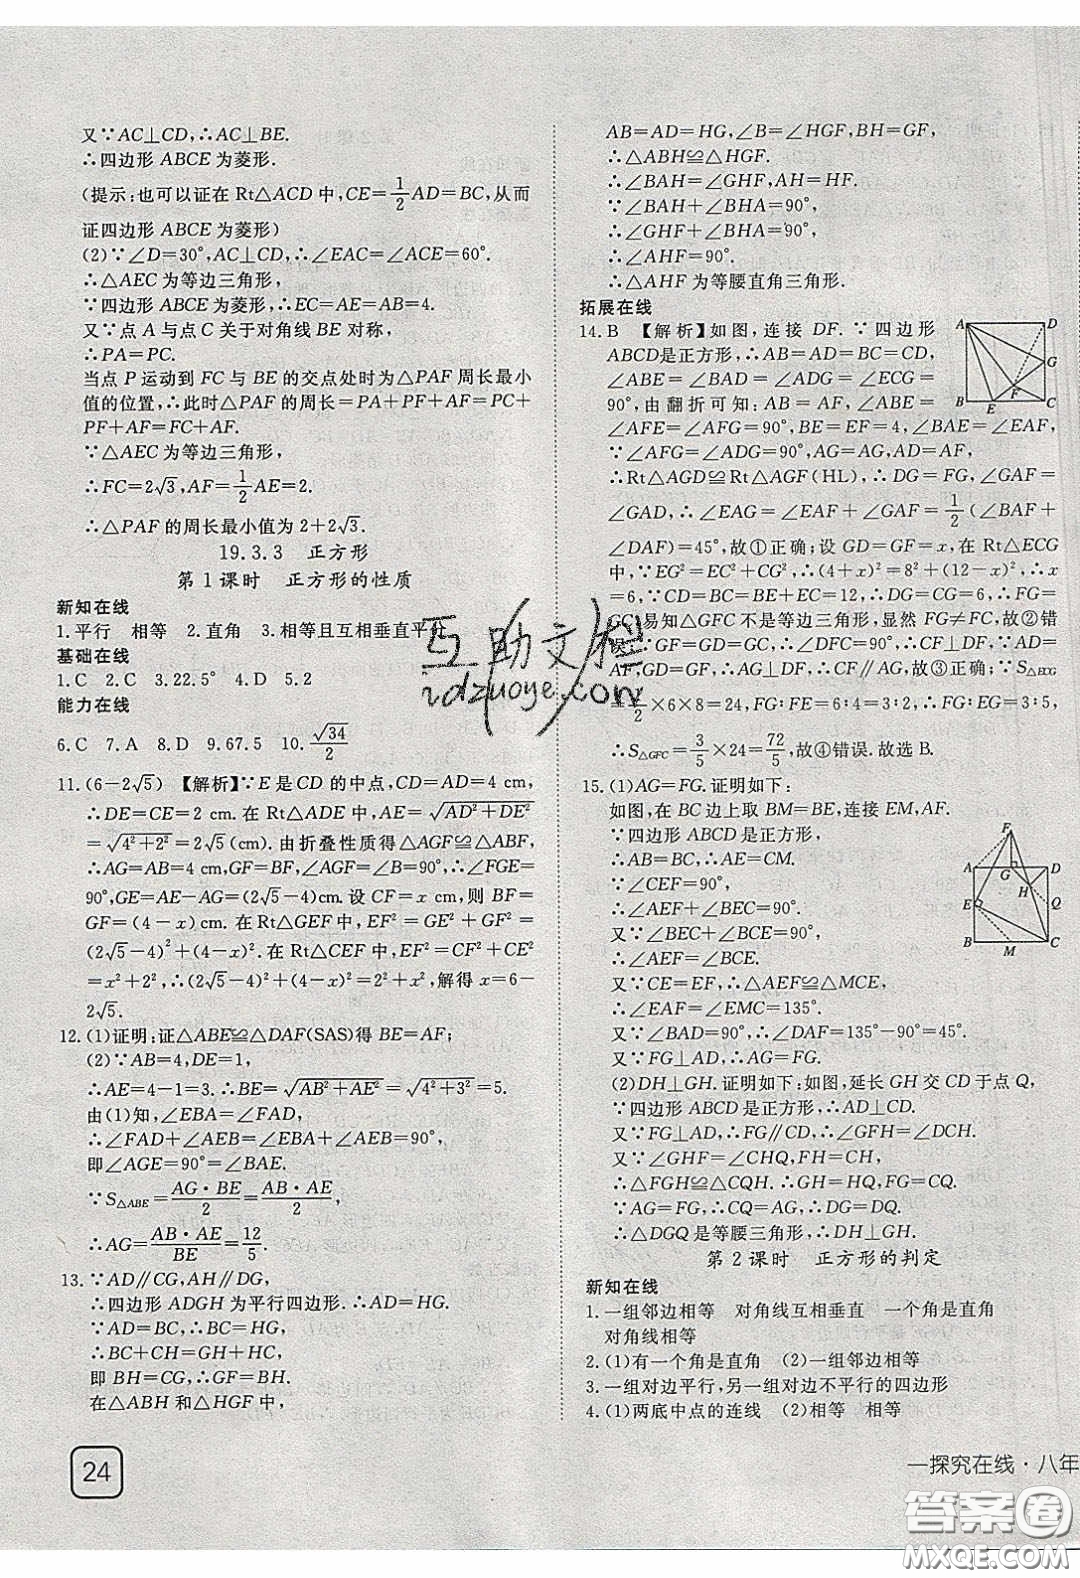 又∵AC⊥CD,∴AC⊥BE.
∴四边形 ABCE 为菱形.
(提示:也可以证在 Rt△ACD 中,CE=1/2AD=BC,从而
证四边形 ABCE 为菱形)
(2)∵∠D=30°,AC⊥CD,∴∠EAC=∠AEC=60°.
∴△AEC 为等边三角形.
∵四边形 ABCE 为菱形,∴EC=AE=AB=4.
又∵点 A 与点 C 关于对角线 BE 对称,
∴PA=PC.
当点 P 运动到 FC 与 BE 的交点处时为△PAF 周长最小
值的位置,∴此时△PAF 的周长=PA+PF+AF=PC+
PF+AF=FC+AF.
∵△AEC 为等边三角形,
∴FC=2√3,AF=1/2AE=2.
∴△PAF 的周长最小值为 2+2√3.
19.3.3 正方形
第 1 课时 正方形的性质
新知在线
1.平行 相等 2.直角 3.相等且互相垂直平分
基础在线
1.C 2.C 3.22.5° 4.D 5.2
能力在线
6.C 7.A 8.D 9.67.5 10.√34/2
11.(6-2√5) 【解析】∵E 是 CD 的中点,CD=AD=4 cm,
∴DE=CE=2 cm. 在 Rt△ADE 中,AE=√(AD²+DE²)
=√(4²+2²)=2√5(cm). 由折叠性质得△AGF≌△ABF,
∴AG=AB=4 cm,GF=BF,∠AGF=∠B=90°,∴∠FGE=
90°,GE=AE-AG=(2√5-4)cm. 设 CF=x cm,则 BF=
GF=(4-x)cm. 在 Rt△GEF 中,EF²=GE²+GF²=
(2√5-4)²+(4-x)². 在 Rt△CEF 中,EF²=CF²+CE²
=x²+2²,∴(2√5-4)²+(4-x)²=2²+x²,解得 x=6-
2√5.
12.(1)证明:证△ABE≌△DAF(SAS)得 BE=AF;
(2)∵AB=4,DE=1,
∴AE=4-1=3. ∴BE=√(AB²+AE²)=√(4²+3²)=5.
由(1)知,∠EBA=∠FAD,
∴∠FAD+∠AEB=∠EBA+∠AEB=90°,
即∠AGE=90°=∠BAE.
∵S△ABE=AG·BE/2=AB·AE/2,
∴AG=AB·AE/BE=12/5.
13.∵AD∥CG,AH∥DG,
∴四边形 ADGH 为平行四边形. ∴AD=HG.
∵AD=BC,∴BC=HG.
∴BC+CH=HG+CH,
即 BH=CG. ∴BH=GF.
在△ABH 和△HGF 中,
24
AB=AD=HG,∠B=∠HGF,BH=GF,
∴△ABH≌△HGF.
∴∠BAH=∠GHF,AH=HF.
∵∠BAH+∠BHA=90°,
∴∠GHF+∠BHA=90°.
∴∠AHF=90°.
∴△AHF 为等腰直角三角形.
拓展在线
14.B 【解析】如图,连接 DF. ∵四边形
ABCD是正方形,∴AB=AD=BC=CD,
∠ABE=∠BAD=∠ADG=∠ECG=
90°,由翻折可知:AB=AF,∠ABE=
∠AFE=∠AFG=90°,BE=EF=4,∠BAE=∠EAF,
∵∠AFG=∠ADG=90°,AG=AG,AD=AF,
∴Rt△AGD≌Rt△AGF(HL),∴DG=FG,∠GAF=
∠GAD,∴∠EAG=∠EAF+∠GAF=1/2(∠BAF+
∠DAF)=45°,故①正确;设 GD=GF=x,在 Rt△ECG
中,∵EG²=EC²+CG²,∴(4+x)²=8²+(12-x)²,∴x
=6,∵CD=BC=BE+EC=12,∴DG=CG=6,∴FG=
GC,易知△GFC 不是等边三角形,显然 FG≠FC,故②错
误;∵GF=GD=GC,∴∠DFC=90°,∴CF⊥DF,∵AD=
AF,GD=GF,∴AG⊥DF,∴CF∥AG,故③正确;∵S△ECG
=1/2×6×8=24,FG:FE=6:4=3:2,∴FG:EG=3:5,
∴S△GFC=3/5×24=72/5,故④错误. 故选 B.
A D G B E F C
15.(1)AG=FG. 证明如下:
如图,在 BC 边上取 BM=BE,连接 EM,AF.
∵四边形 ABCD 是正方形,
∴AB=BC,∴AE=CM.
∵∠CEF=90°,
∴∠AEF+∠BEC=90°.
又∵∠BEC+∠BCE=90°,
∴∠AEF=∠BCE.
又∵CE=EF,∴△AEF≌△MCE.
∴∠EAF=∠EMC=135°.
又∵∠BAD=90°,∴∠DAF=135°-90°=45°.
又∵FG⊥AD,∴AG=FG.
F A G D H E Q B M C
(2)DH⊥GH. 证明如下:如图,延长 GH 交 CD 于点 Q,
∵四边形 ABCD 是正方形,∴AD⊥CD.
又∵FG⊥AD,∴FG∥CD,∴∠GFH=∠DCH.
又∵∠GHF=∠CHQ,FH=CH,
∴△FGH≌△CQH. ∴GH=HQ,FG=CQ.
∵AG=FG,∴AG=CQ,∴DG=DQ,
∴△DGQ 是等腰三角形,∴DH⊥GH.
第 2 课时 正方形的判定
新知在线
1.一组邻边相等 对角线互相垂直 一个角是直角
对角线相等
2.(1)有一个角是直角 (2)一组邻边相等
3.一组对边平行,另一组对边不平行的四边形
4.(1)两底中点的连线 (2)相等 相等
一探究在线·八年
互助文程
idzuoye.com
答案圈
MXQE.COM